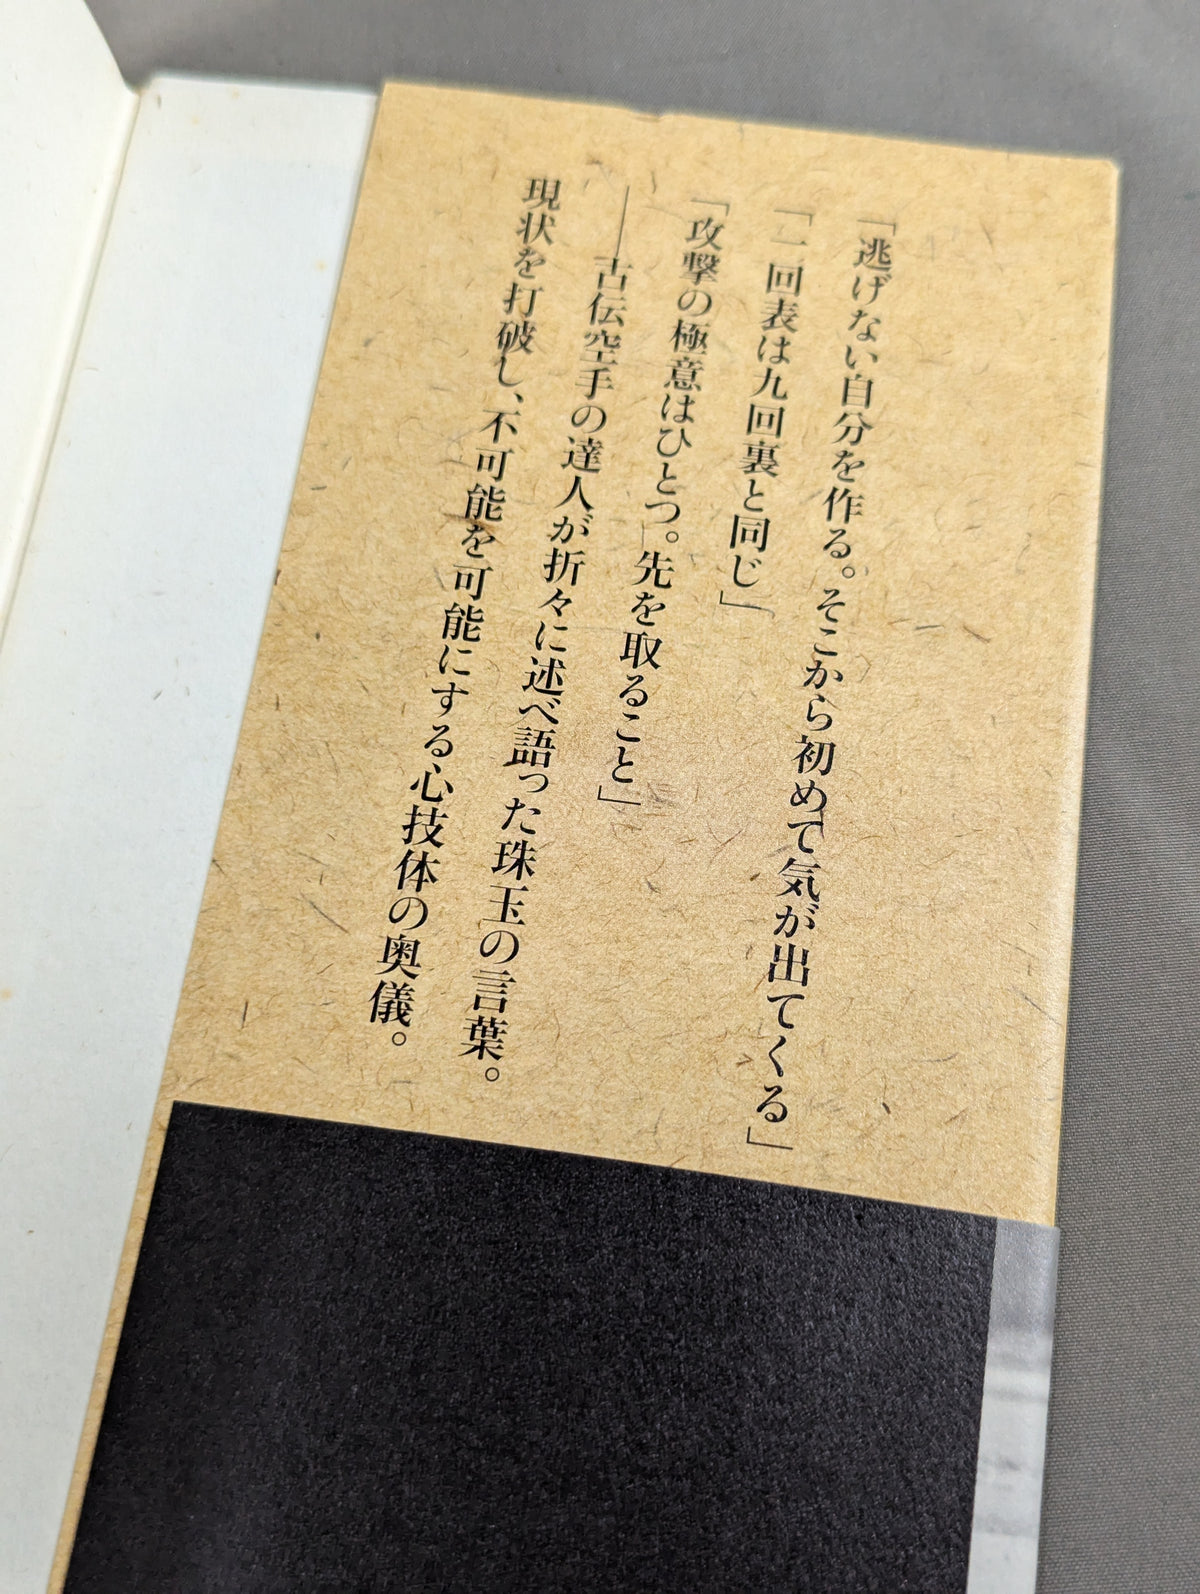 「逃げない自分を作る。そこから初めて気が出てくる」
「一回表は九回裏と同じ」
「攻撃の極意はひとつ。先を取ること」
――古伝空手の達人が折々に述べ語った珠玉の言葉。
現状を打破し、不可能を可能にする心技体の奥儀。